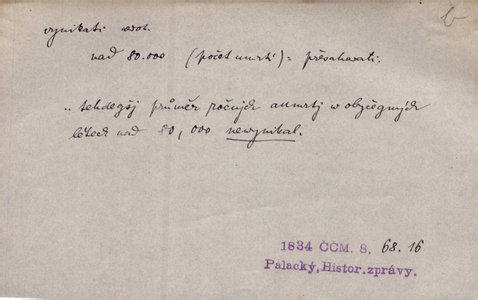 b
vynikati
nad 80.000 (počet úmrtí) = přesahovati.
.. tehdegšj průměr počtu aumrtj w obyčegných
létech nad 80,000 newynikal.
1834 ČČM. 8. 68. 16
Palacký, Histor. zprávy.